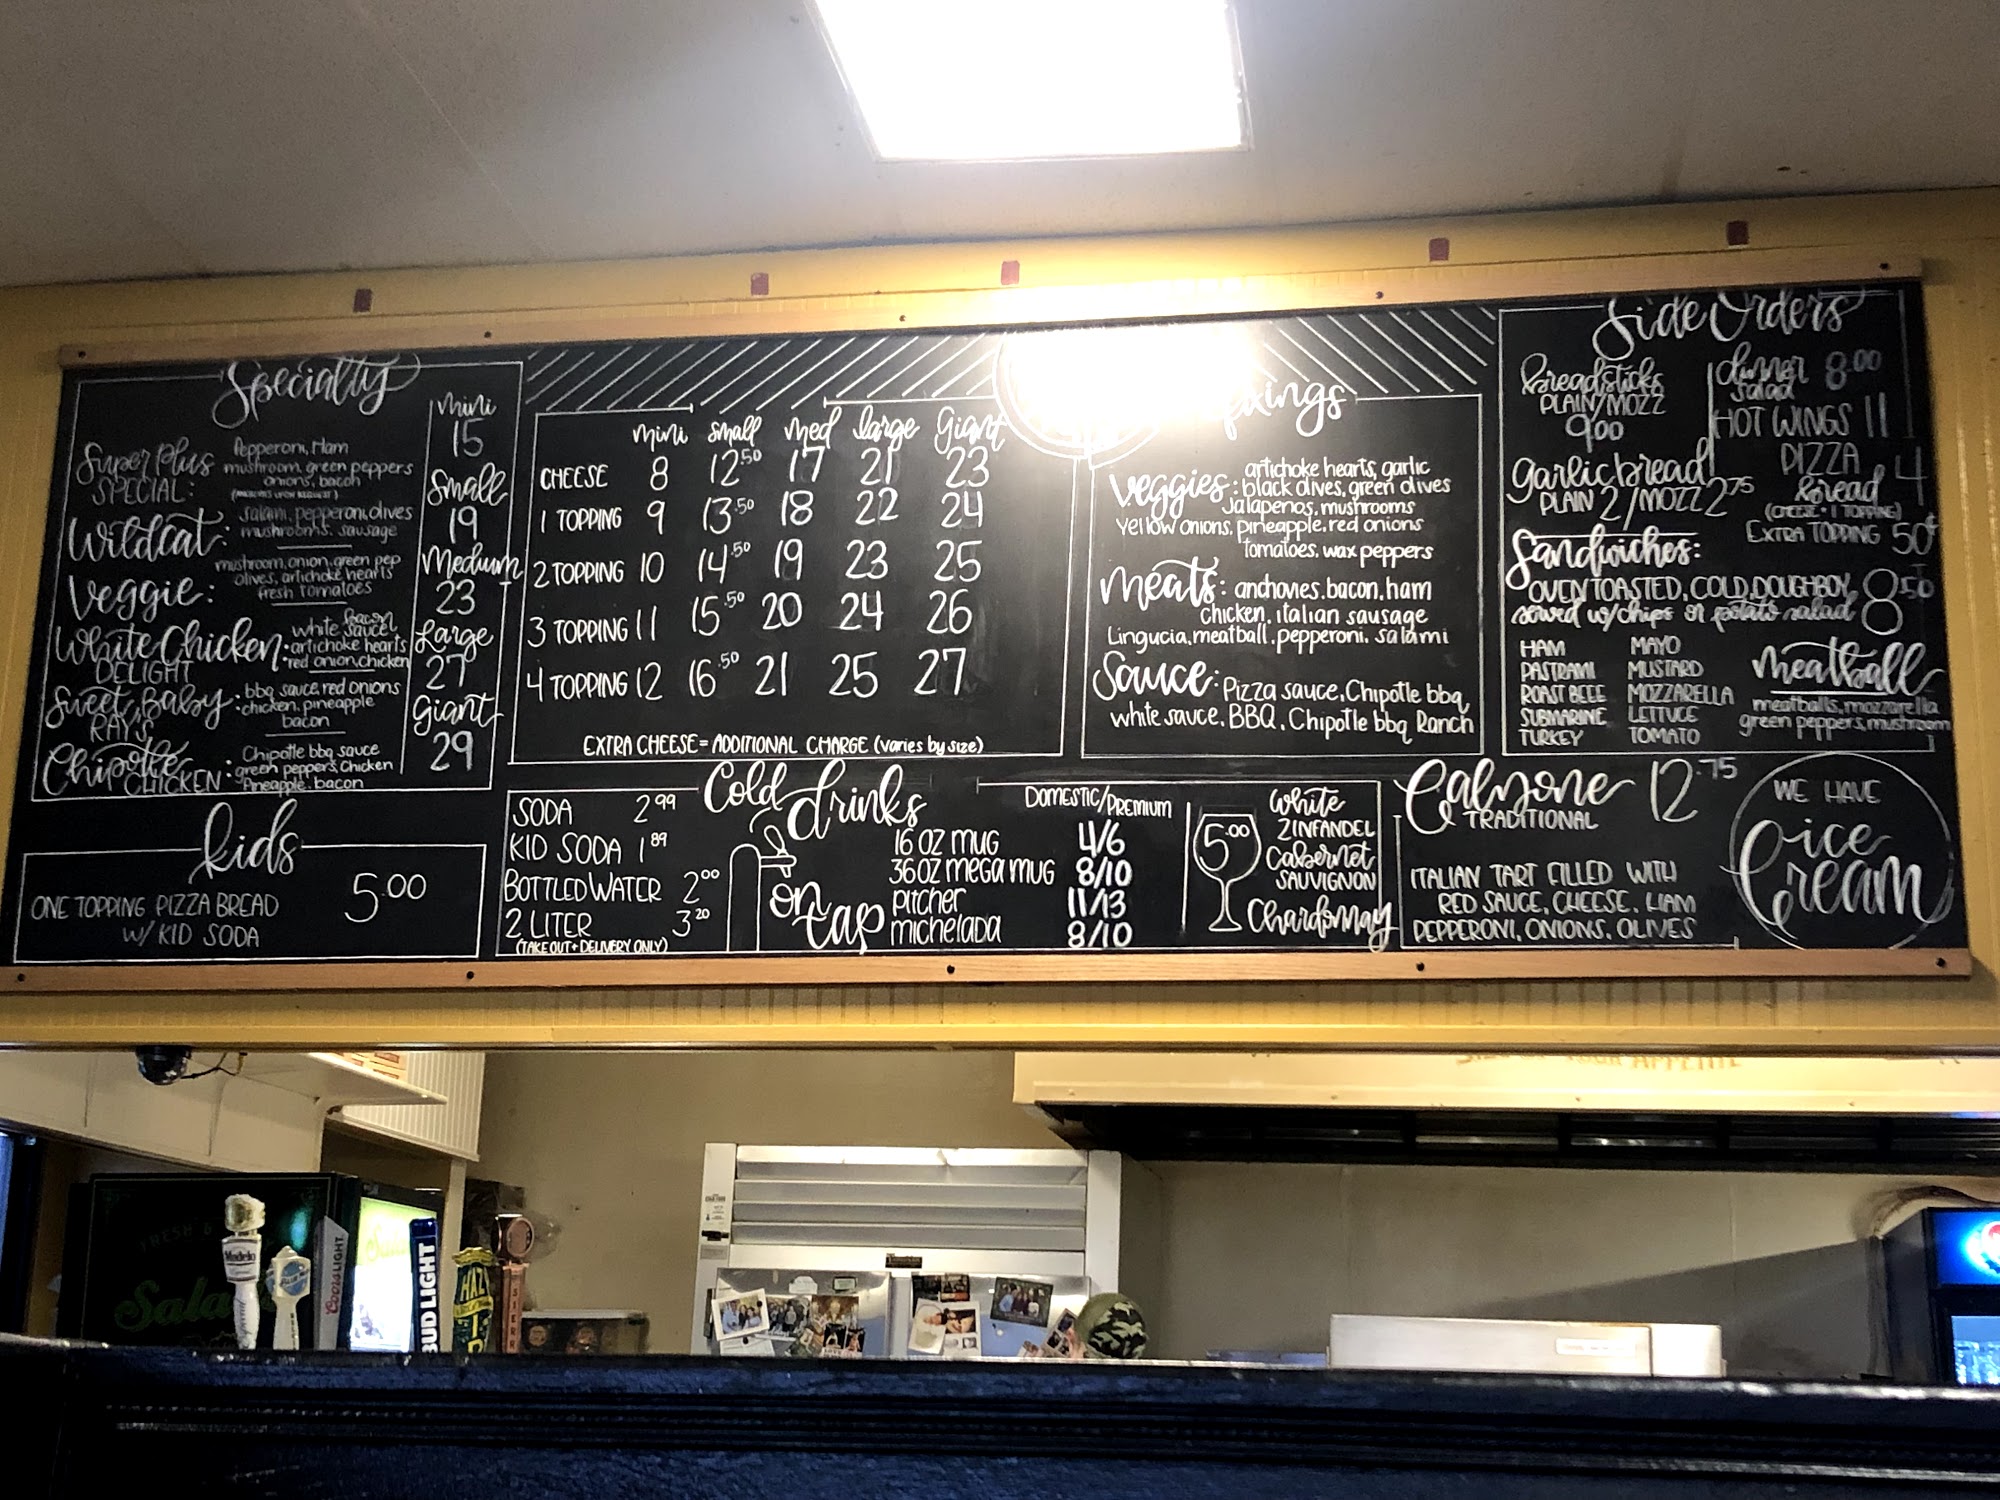 Specialty
mini
15
Small
19
Medium
23
Large
27
Giant
29
Super Plus
SPECIAL:
Pepperoni, Ham
mushroom, green peppers
onions, bacon
Wildcat:
Salami, pepperoni, olives
mushrooms, sausage
Veggie:
mushroom, onion, green pep
olives, artichoke hearts
fresh tomatoes
White Chicken
DELIGHT
Bacon
white sauce
artichoke hearts
red onion, chicken
Sweet Baby
RAY'S
bbq sauce, red onions
chicken, pineapple
bacon
Chipotle
CHICKEN
Chipotle bbq sauce
green peppers, Chicken
Pineapple, bacon
kids
ONE TOPPING PIZZA BREAD
W/ KID SODA
5.00
mini small med large Giant
CHEESE 8 12.50 17 21 23
1 TOPPING 9 13.50 18 22 24
2 TOPPING 10 14.50 19 23 25
3 TOPPING 11 15.50 20 24 26
4 TOPPING 12 16.50 21 25 27
EXTRA CHEESE = ADDITIONAL CHARGE (varies by size)
Veggies: artichoke hearts, garlic
black olives, green olives
Jalapenos, mushrooms
Yellow onions, pineapple, red onions
tomatoes, wax peppers
Meats: anchovies, bacon, ham
chicken, italian sausage
Linguica, meatball, pepperoni, salami
Sauce: Pizza sauce, Chipotle bbq
white sauce, BBQ, Chipotle bbq Ranch
Cold drinks
SODA 2.99
KID SODA 1.89
BOTTLED WATER 2.00
2 LITER 3.20
(TAKE OUT + DELIVERY ONLY)
on tap
DOMESTIC/PREMIUM
16 OZ MUG 4/6
36 OZ MEGA MUG 8/10
pitcher 11/13
michelada 8/10
5.00
White
ZINFANDEL
Cabernet
SAUVIGNON
Chardonnay
Side Orders
breadsticks
PLAIN/MOZZ
9.00
dinner
salad 8.00
HOT WINGS 11
garlic bread
PLAIN 2/MOZZ 2.75
PIZZA
bread 4
(CHEESE + 1 TOPPING)
EXTRA TOPPING 50¢
Sandwiches:
OVEN TOASTED, COLD, DOUGHBOY
served w/chips or potato salad 8.50
HAM MAYO
PASTRAMI MUSTARD
ROAST BEEF MOZZARELLA
SUBMARINE LETTUCE
TURKEY TOMATO
Meatball
meatballs, mozzarella
green peppers, mushroom
Calzone 12.75
TRADITIONAL
ITALIAN TART FILLED WITH
RED SAUCE, CHEESE, HAM
PEPPERONI, ONIONS, OLIVES
WE HAVE
ice
Cream
Modelo
Coors LIGHT
BUD LIGHT
HAZY
SIERR